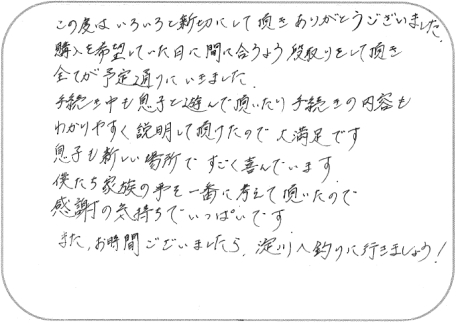 この度はいろいろと親切にして頂きありがとうございました。
購入を希望していた日に間に合うよう段取りをして頂き
全てが予定通りにいきました。
手続き中も息子と遊んで頂いたり手続きの内容も
わかりやすく説明して頂けたので大満足です
息子も新しい場所ですごく喜んでいます。
僕たち家族の事を一番に考えて頂いたので
感謝の気持ちでいっぱいです。
また、お時間ございましたら、淀川へ釣りに行きましょう!